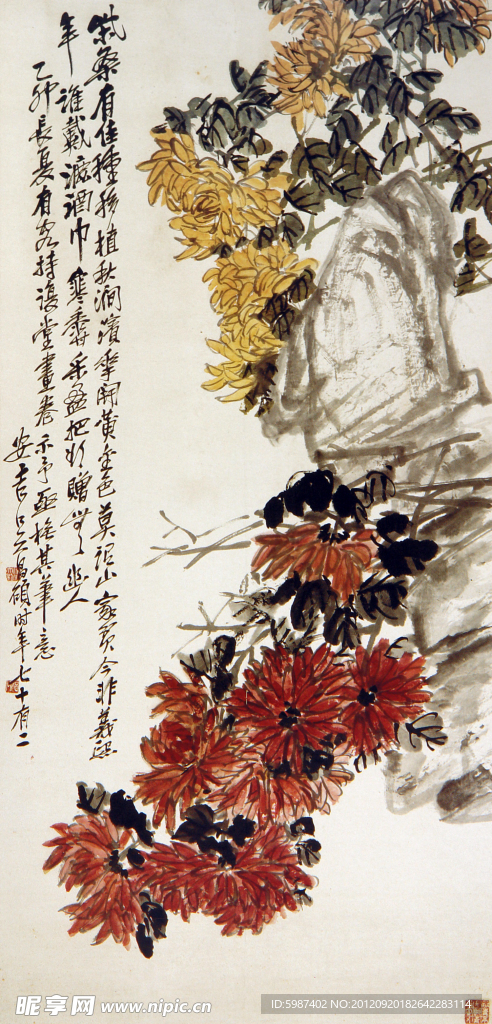 柴桑有佳種移植秋澗濱華開黃金色莫山家貧今非義熙
年誰戴漉酒巾寒香采盈把贈幽人
乙卯長夏有客持復堂畫卷示予亟橅其筆意
安吉吳昌碩時年七十有二
昵享网 www.nipic.cn
ID:5987402 NO:20120920182642283114